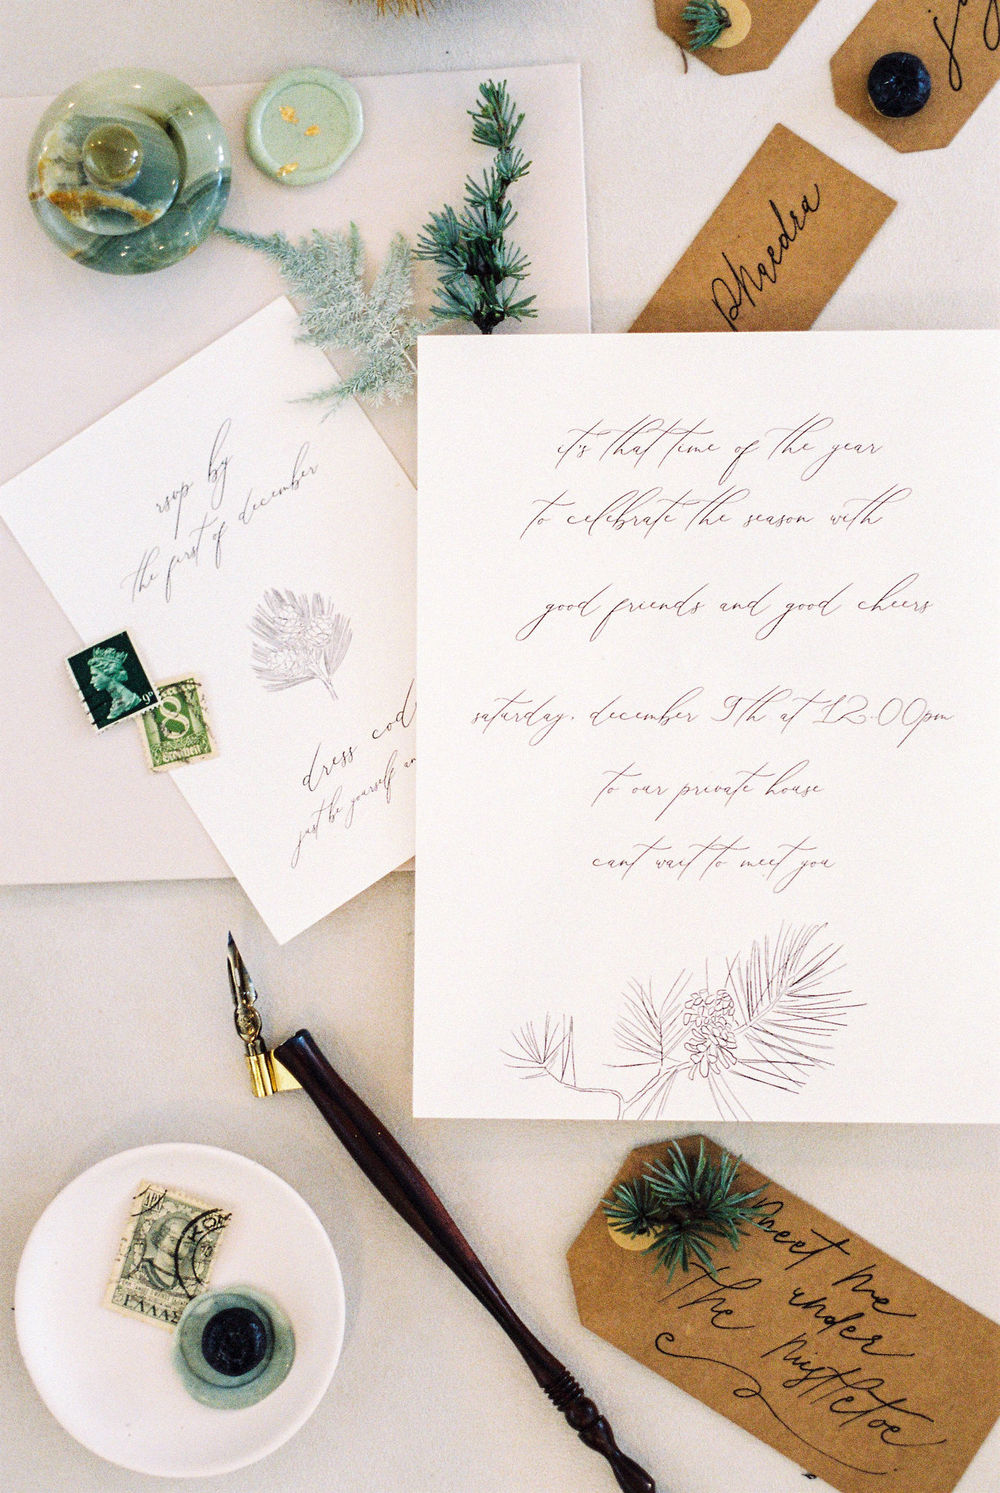 phaedra
it's that time of the year
to celebrate the season with
good friends and good cheers
saturday, december 9th at 12.00pm
to our private house
cant wait to meet you
rsvp by
the first of december
dress cod
just be yourself an
9P
8
ΕΛΛΑΣ
meet me
under
the mistletoe